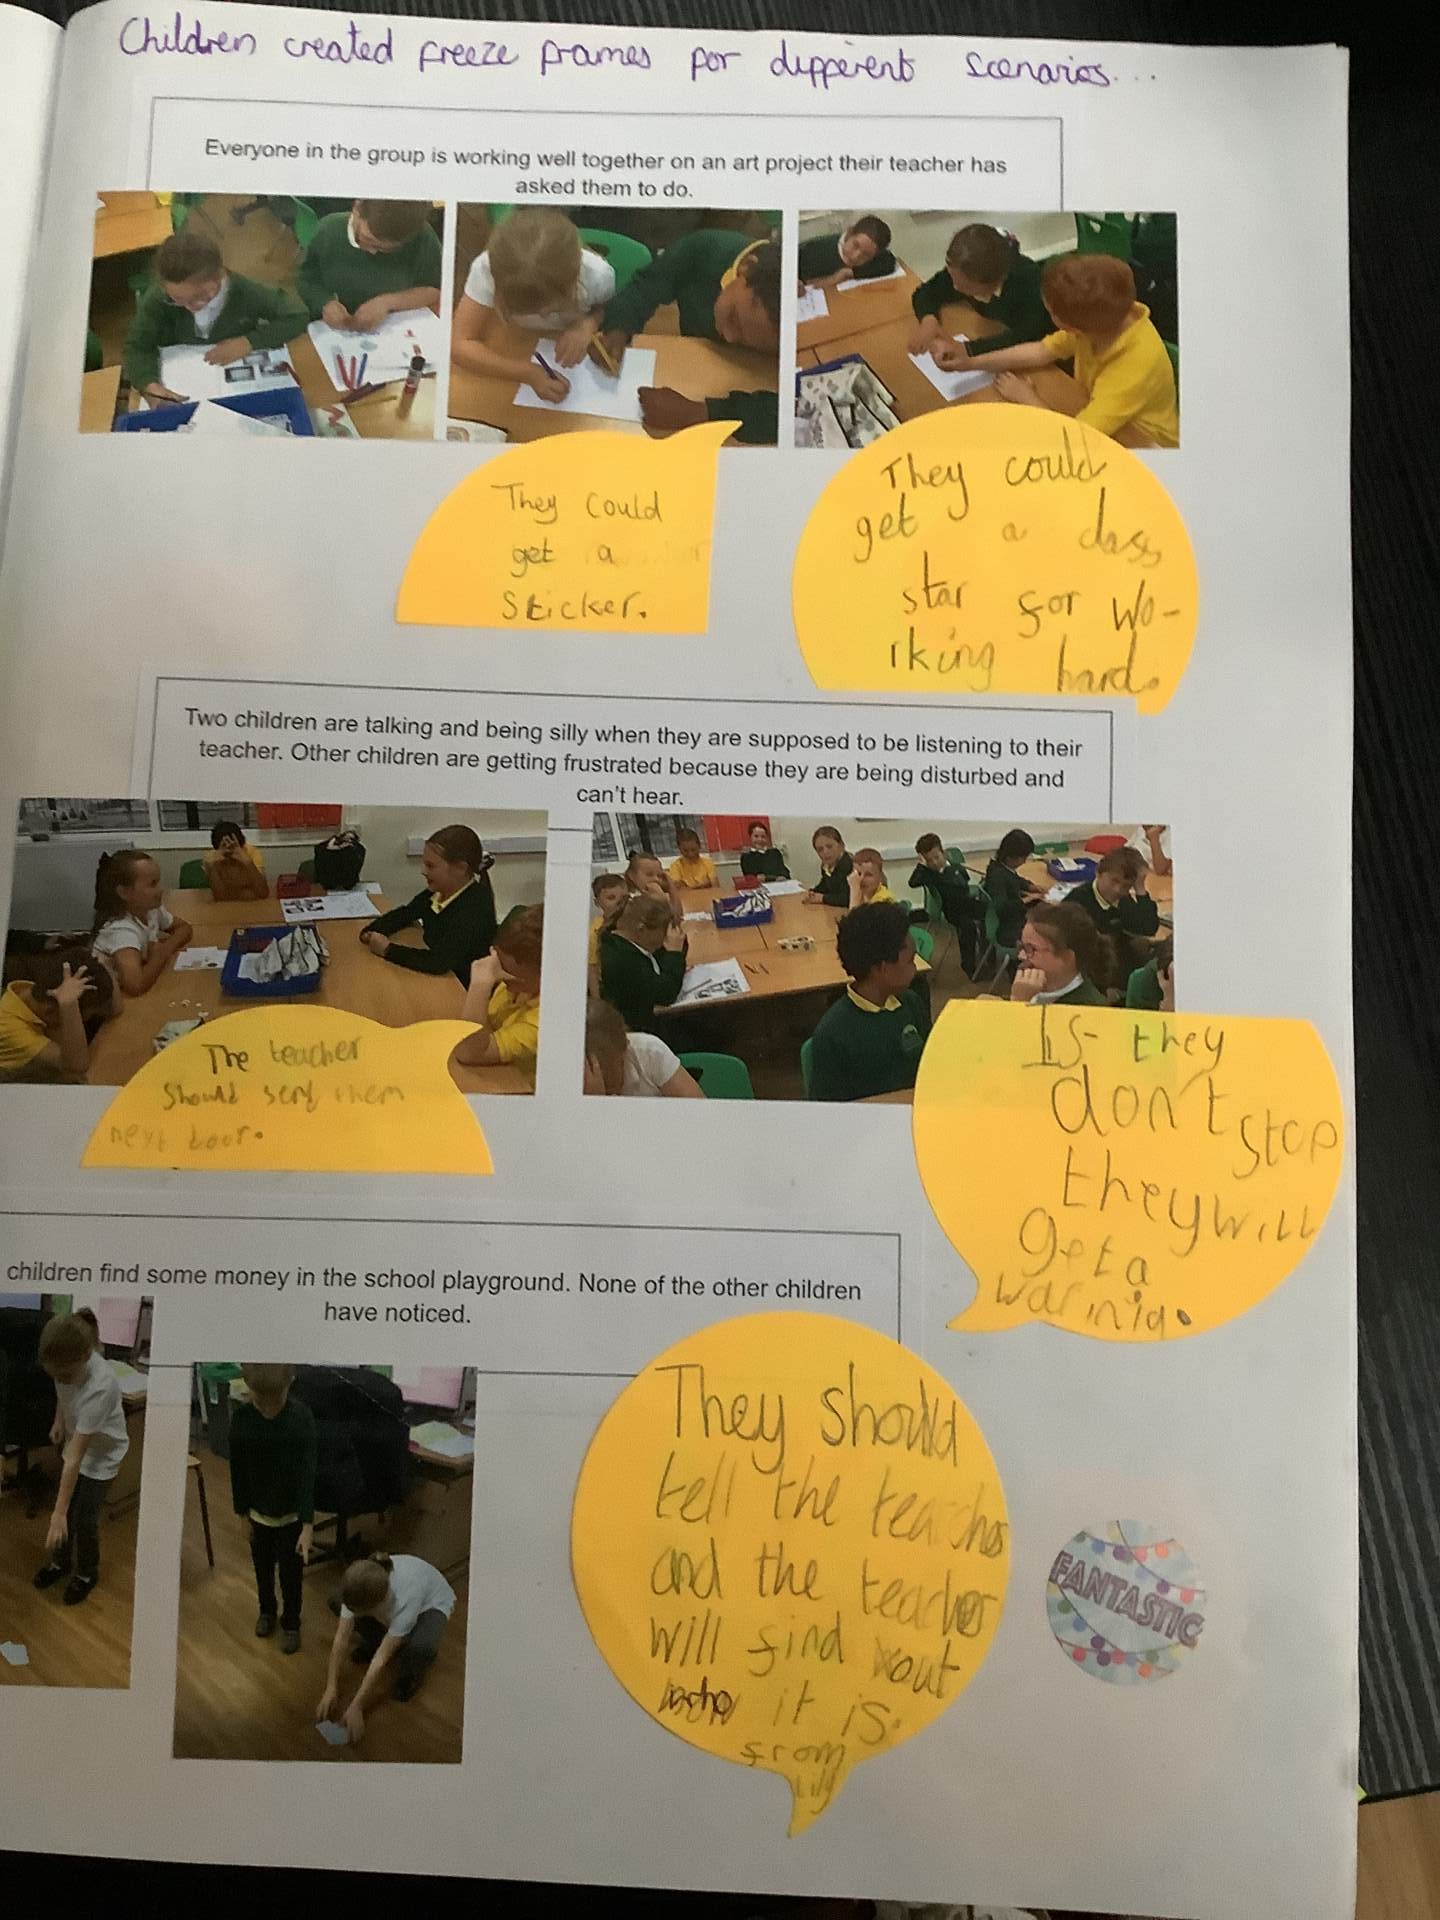 Children created freeze frames for different scenarios...
Everyone in the group is working well together on an art project their teacher has
asked them to do.
They could
get a
sticker.
They could
get a class
star for wo-
rking hard.
Two children are talking and being silly when they are supposed to be listening to their
teacher. Other children are getting frustrated because they are being disturbed and
can't hear.
The teacher
should send them
next door.
If they
don't stop
they will
get a
warning.
children find some money in the school playground. None of the other children
have noticed.
They should
tell the teacher
and the teacher
will find out
who it is.
from
Lily
FANTASTIC